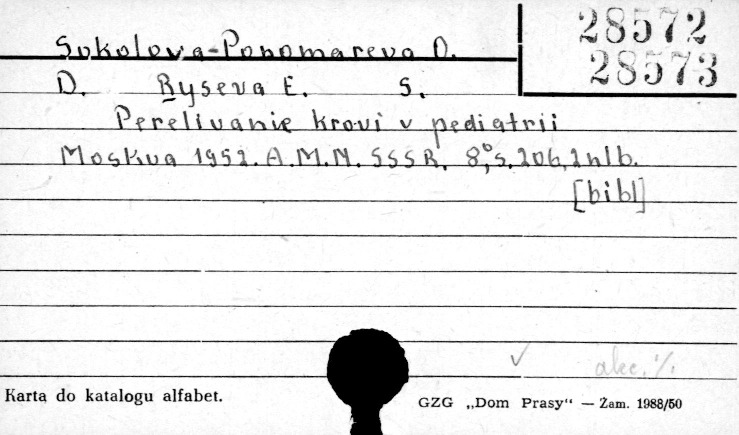 28572
28573
Sokolova-Ponomareva O.
D. Ryseva E. S.
Perelivanie krovi v pediatrii
Moskva 1952. A.M.N. SSSR. 8°, s. 206, 2nlb.
[bibl]
akc. ·/.
Karta do katalogu alfabet.
GZG „Dom Prasy“ — Zam. 1988/50